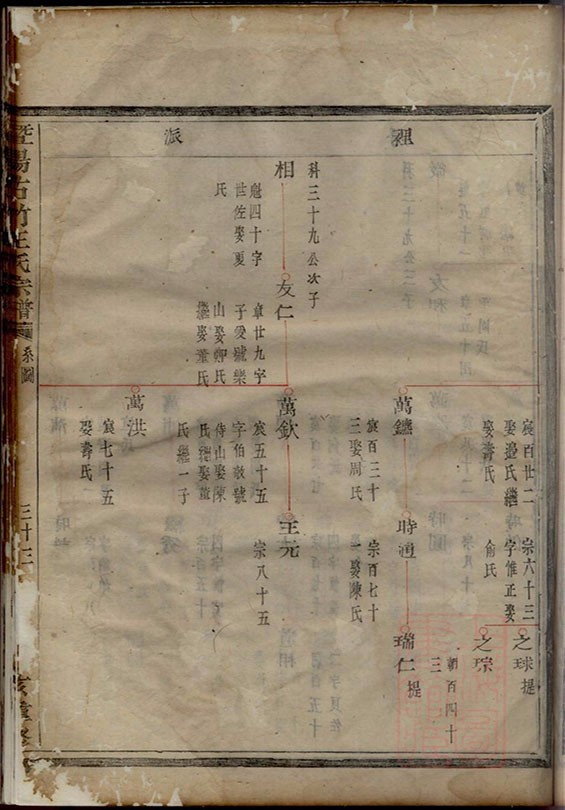 派
衵
宸百廿二
娶邊氏繼
娶壽氏
宗六十三
字惟正娶
俞氏
之球提
之琮
朝百四十
三
萬鐩
宸百三十
三娶周氏
時通
宗百七十
一娶陳氏
瑞仁提
科三十九公次子
相
魁四十字
世佐娶夏
氏
友仁
章廿九字
子愛號樂
山娶鄭氏
繼娶董氏
萬欽
宸五十五
字伯敬號
侍山娶陳
氏繼娶董
氏繼一子
王元
宗八十五
萬洪
宸七十五
娶壽氏
暨陽古竹王氏宗譜
系圖
三十三
重修